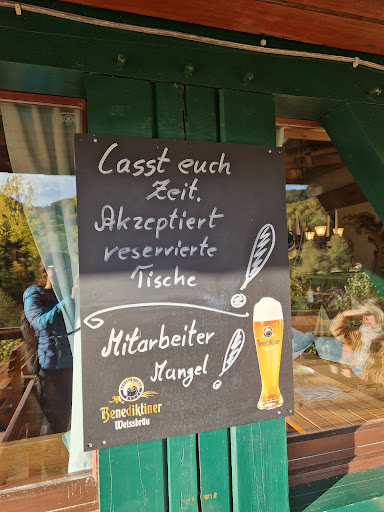 Lasst euch
Zeit.
Akzeptiert
reservierte
Tische !
Mitarbeiter
Mangel !
Benediktiner
Weissbräu